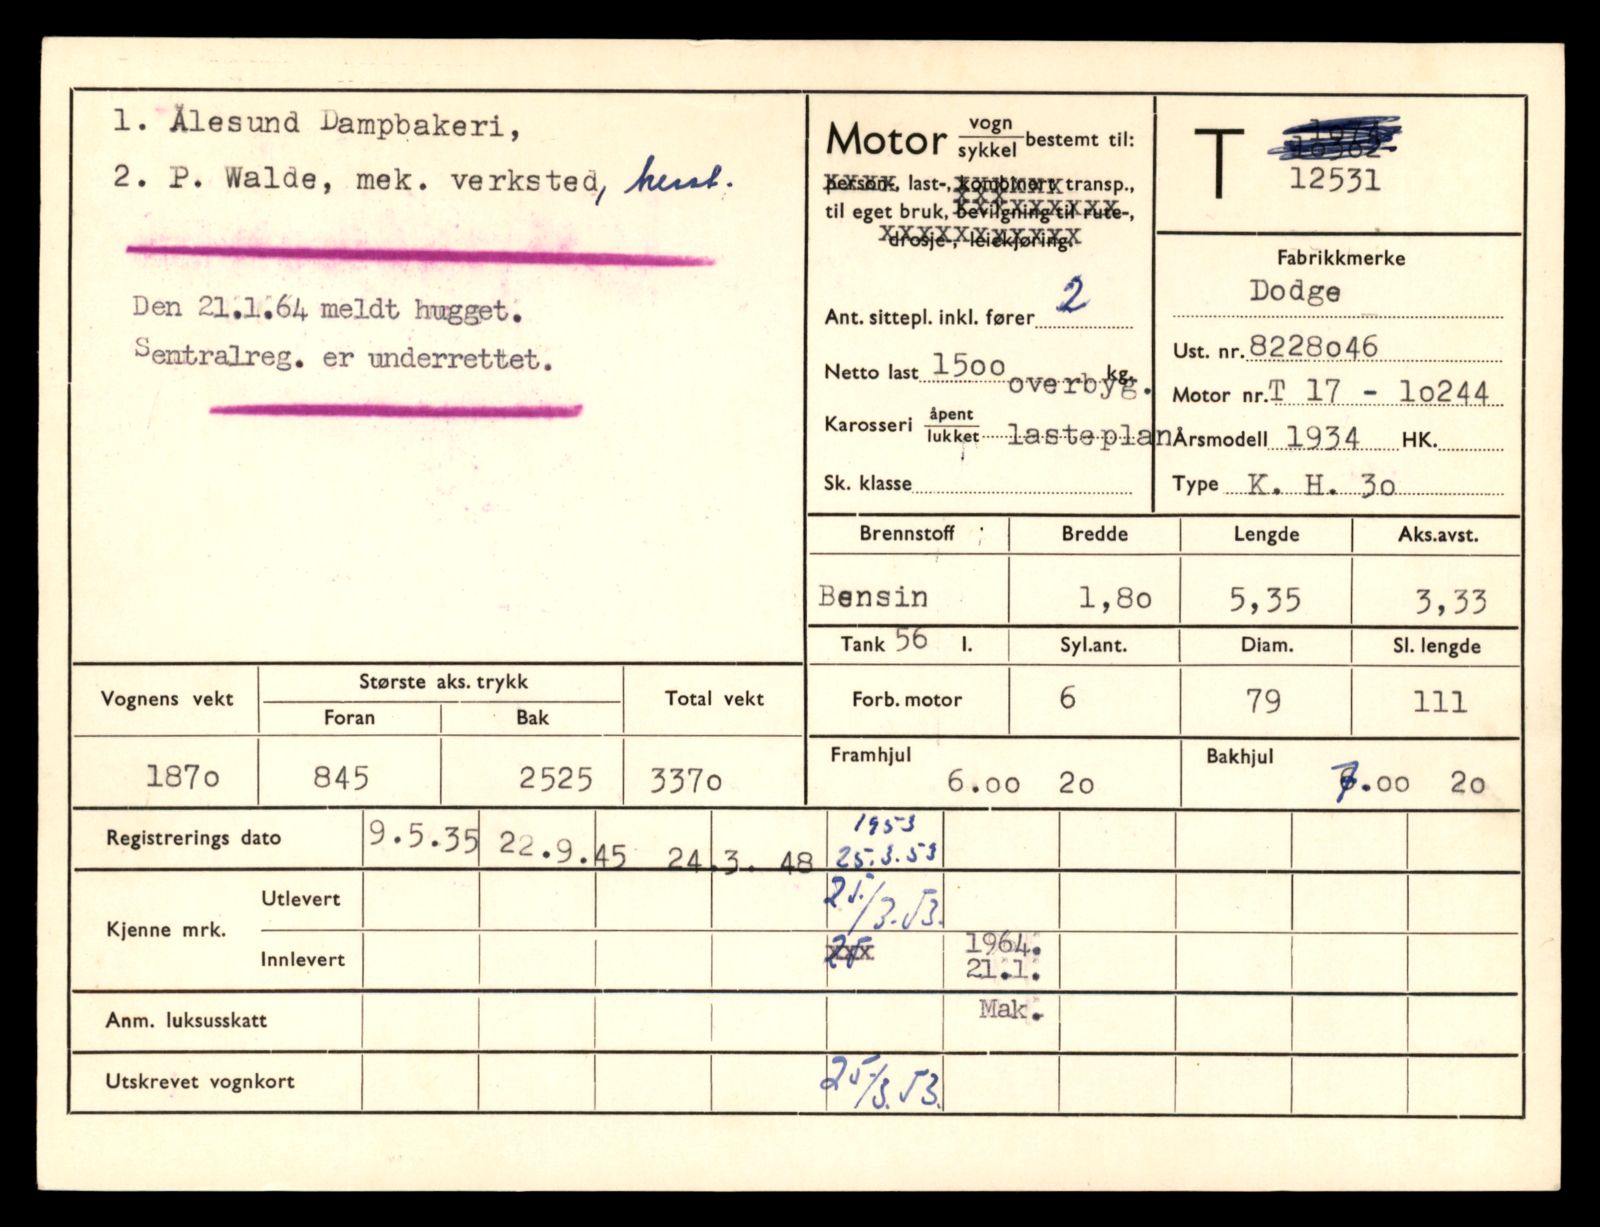 1. Ålesund Dampbakeri,
2. P. Walde, mek. verksted, herst.
Den 21.1.64 meldt hugget.
Sentralreg. er underrettet.
Motor vogn/sykkel bestemt til:
person-, last-, kombinert transp.,
til eget bruk, bevilgning til rute-,
drosje-, leiekjøring.
Ant. sittepl. inkl. fører 2
Netto last 1500 kg.
overbyg.
Karosseri åpent/lukket lasteplan
Sk. klasse
T
12531
Fabrikkmerke
Dodge
Ust. nr. 8228046
Motor nr. T 17 - 10244
Årsmodell 1934 HK.
Type K. H. 30
Brennstoff Bredde Lengde Aks.avst.
Bensin 1,80 5,35 3,33
Tank 56 l. Syl.ant. Diam. Sl. lengde
Forb. motor 6 79 111
Framhjul 6.00 20 Bakhjul 7.00 20
Vognens vekt Største aks. trykk Total vekt
Foran Bak
1870 845 2525 3370
1953
Registrerings dato 9.5.35 22.9.45 24.3. 48 25.3.53
Kjenne mrk.
Utlevert 25/3.53.
Innlevert 25 1964.
21.1.
Anm. luksusskatt Mak.
Utskrevet vognkort 25/3.53.